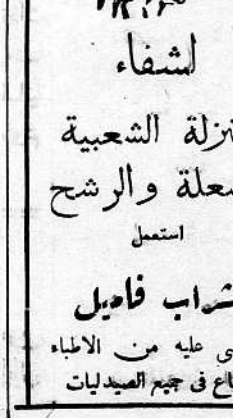 لشفاء
نزلة الشعبية
سعلة والرشح
استعمل
شراب فاميل
عليه من الاطباء
باع في جميع الصيدليات